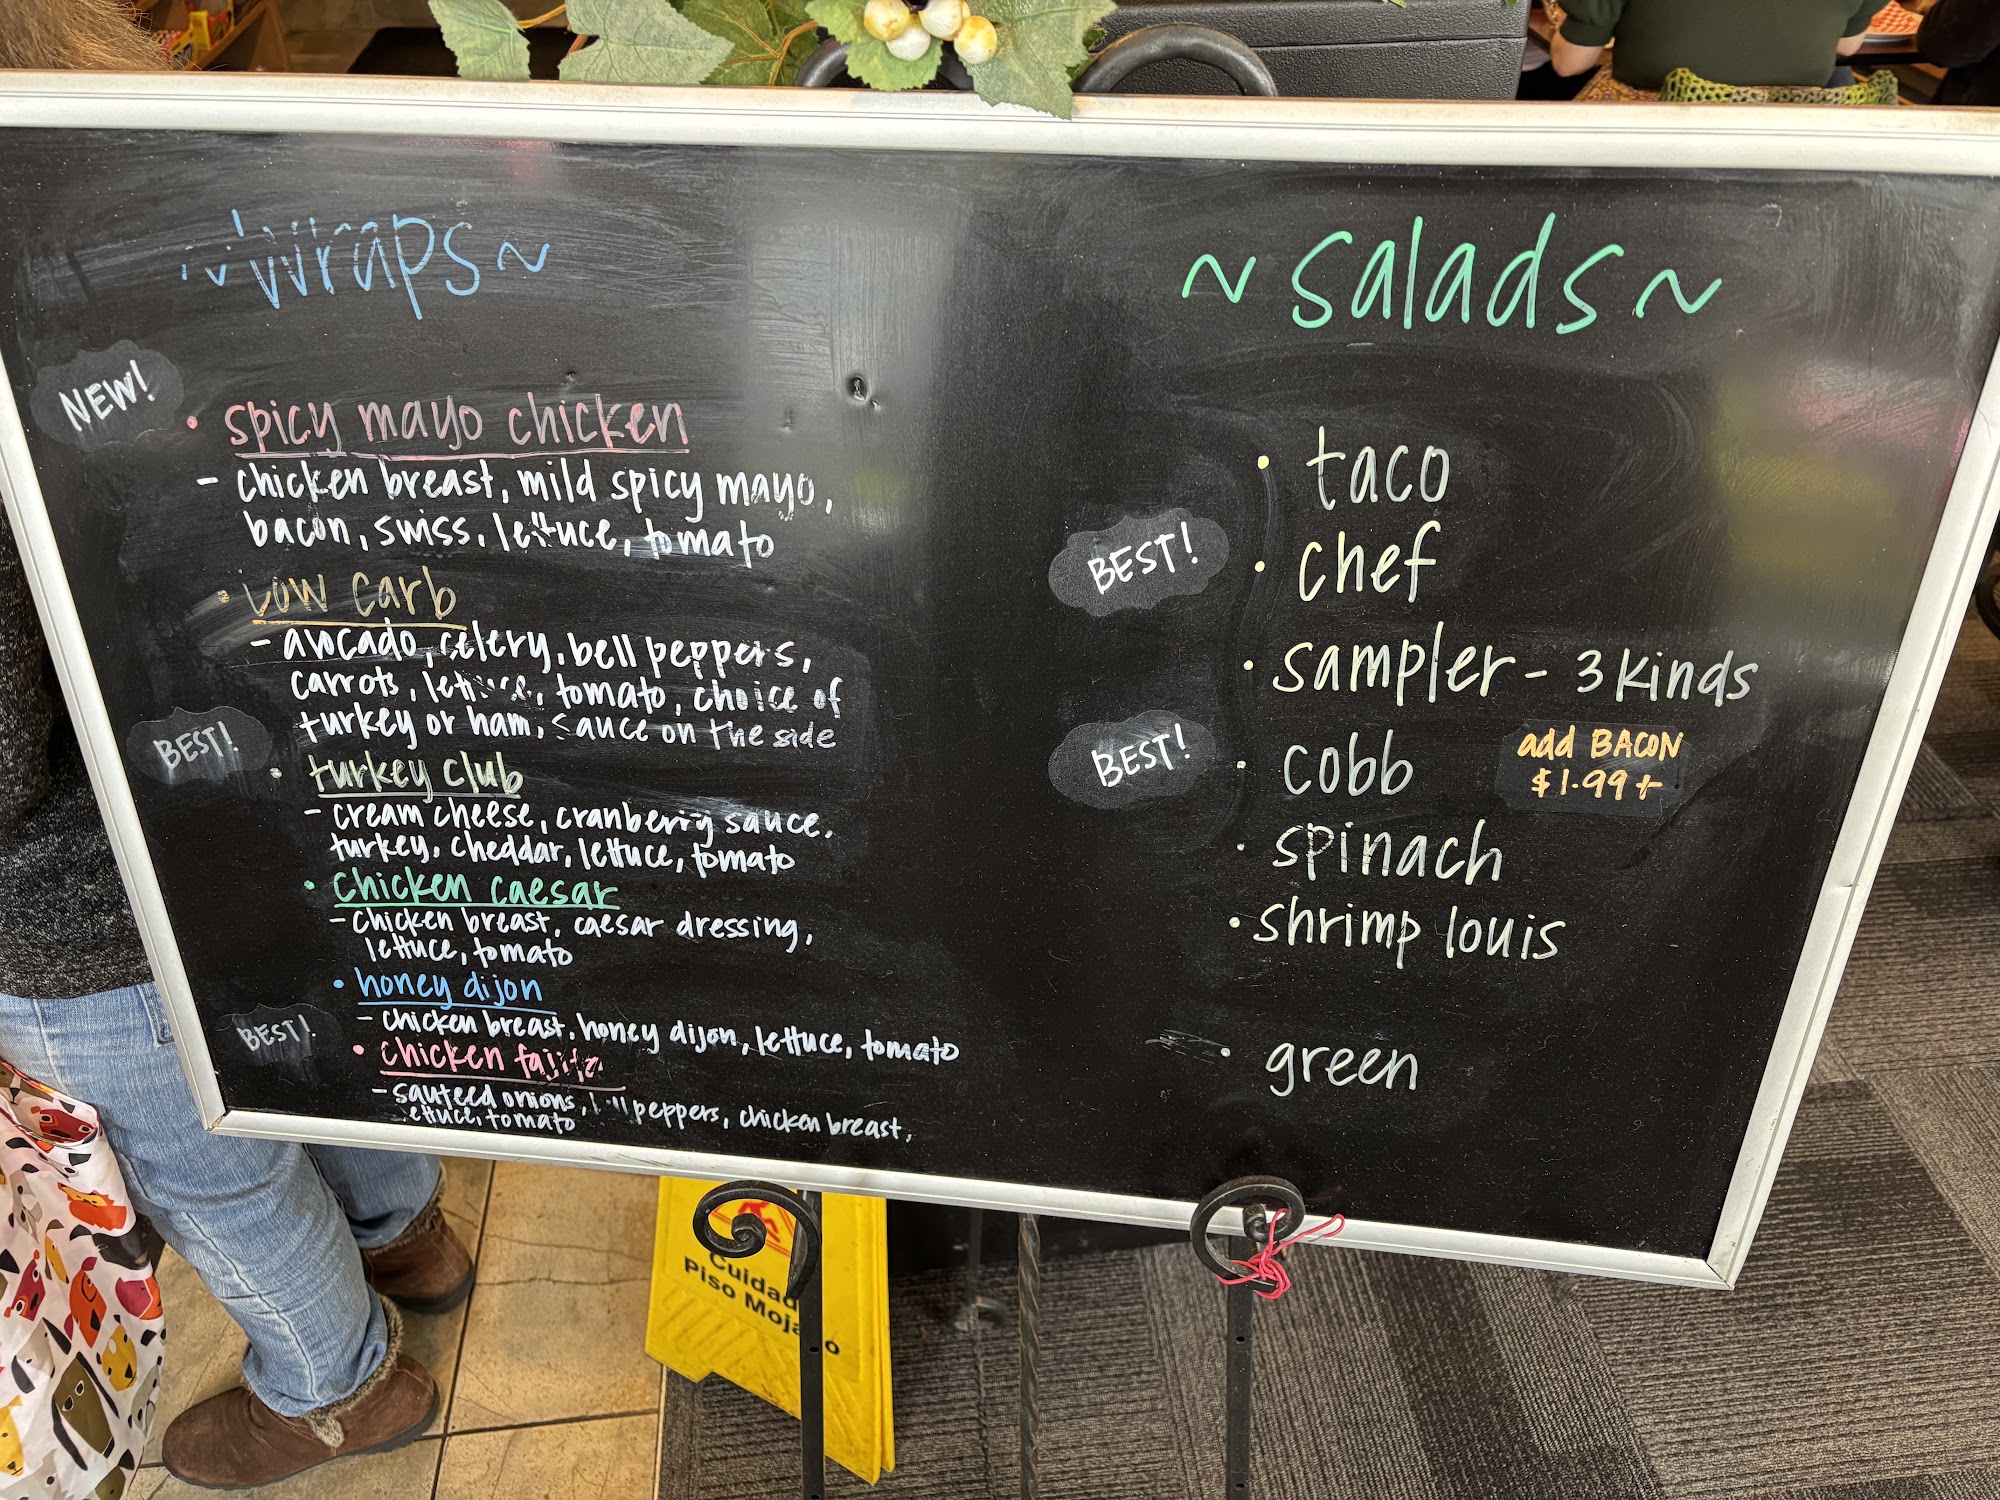 ~wraps~
NEW!
• spicy mayo chicken
- chicken breast, mild spicy mayo,
bacon, swiss, lettuce, tomato
• Low carb
- avocado, celery, bell peppers,
carrots, lettuce, tomato, choice of
turkey or ham, sauce on the side
BEST!
• turkey club
- cream cheese, cranberry sauce,
turkey, cheddar, lettuce, tomato
• chicken caesar
- chicken breast, caesar dressing,
lettuce, tomato
• honey dijon
- chicken breast, honey dijon, lettuce, tomato
BEST!
• chicken fajita
- sauteed onions, bell peppers, chicken breast,
lettuce, tomato
~salads~
• taco
BEST!
• chef
• sampler - 3 kinds
BEST!
• cobb
add BACON
$1.99+
• spinach
• shrimp louis
• green
Cuidado
Piso Mojado